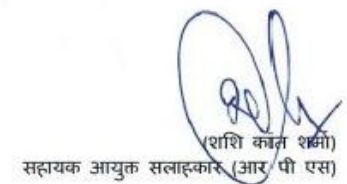 (शशि कांत शर्मा)
सहायक आयुक्त सलाहकार (आर पी एस)